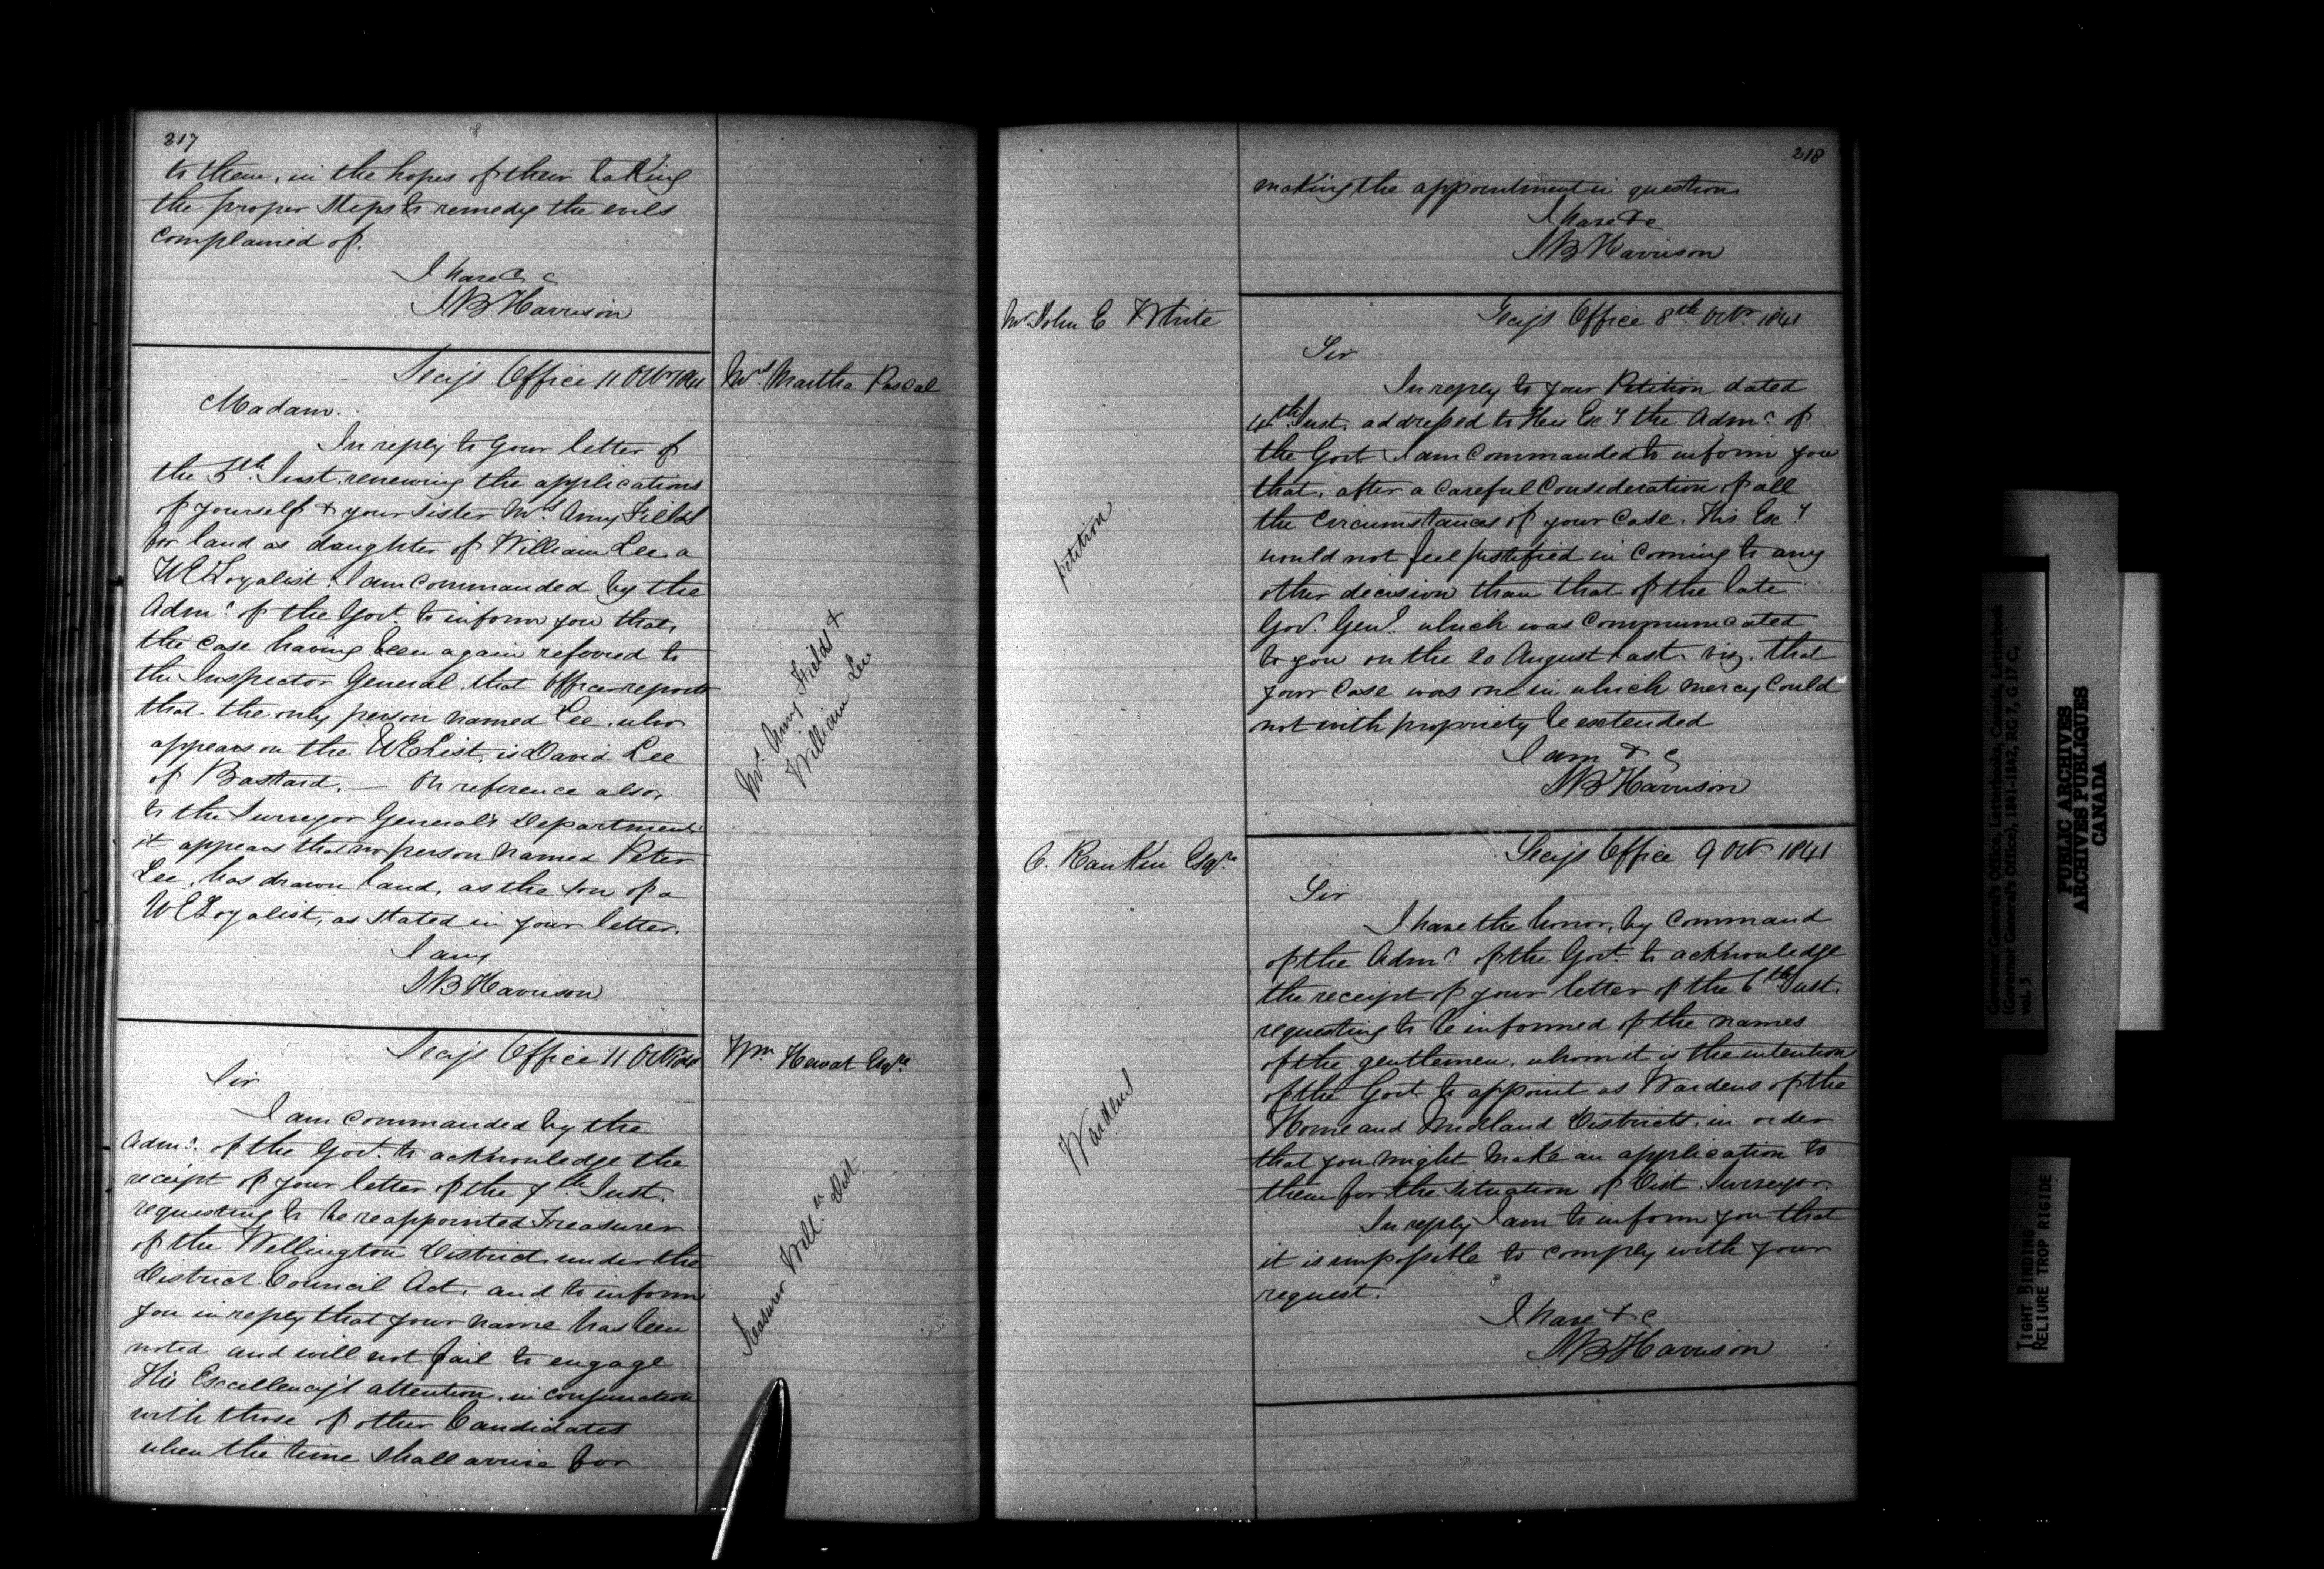 217
to them, in the hopes of their taking
the proper steps to remedy the evils
complained of.
I have &c
SB Harrison
Secys Office 11 Octr 1841
Mrs Martha Pascal
Madam.
In reply to your letter of
the 5th Inst. renewing the applications
of yourself & your sister Mrs Amy Fields
for land as daughter of William Lee, a
UE Loyalist. I am commanded by the
Admr of the Govt. to inform you that,
the case having been again referred to
the Inspector General, that Officer reports
that the only person named Lee, who
appears on the UE List, is David Lee
of Bastard. — On reference also,
to the Surveyor General's Department
it appears that no person named Peter
Lee, has drawn land, as the son of a
UE Loyalist, as stated in your letter.
I am,
SB Harrison
Mrs Amy Fields &
William Lee
Secys Office 11 Octr 1841
Wm Hewat Esqre
Sir
I am commanded by the
Admr of the Govt. to acknowledge the
receipt of your letter of the 7th Inst.
requesting to be reappointed Treasurer
of the Wellington District under the
District Council Act, and to inform
you in reply that your name has been
noted and will not fail to engage
His Excellency's attention, in conjunction
with those of other Candidates
when the time shall arrive for
Treasurer Welln Dist
218
making the appointment in question
I have &c
SB Harrison
Mr John E White
Secys Office 8th Octr 1841
Sir
In reply to your Petition dated
4th Inst. addressed to His Excy the Admr of
the Govt. I am Commanded to inform you
that, after a careful Consideration of all
the circumstances of your case, His Excy
would not feel justified in coming to any
other decision than that of the late
Govr. Genl. which was communicated
to you on the 20 August last. viz. that
your case was one in which mercy could
not with propriety be extended
I am &c
SB Harrison
petition
C. Rankin Esqre
Secys Office 9 Octr 1841
Sir
I have the honor, by Command
of the Admr of the Govt. to acknowledge
the receipt of your letter of the 6th Inst.
requesting to be informed of the names
of the gentlemen, whom it is the intention
of the Govt. to appoint as Wardens of the
Home and Midland Districts, in order
that you might make an application to
them for the situation of Dist Surveyor.
In reply I am to inform you that
it is impossible to comply with your
request.
I have &c
SB Harrison
Wardens
Governor General's Office, Letterbooks, Canada, Letterbook
(Governor General's Office), 1841-1842, RG 7, G 17 C,
vol. 5
PUBLIC ARCHIVES
ARCHIVES PUBLIQUES
CANADA
TIGHT BINDING
RELIURE TROP RIGIDE